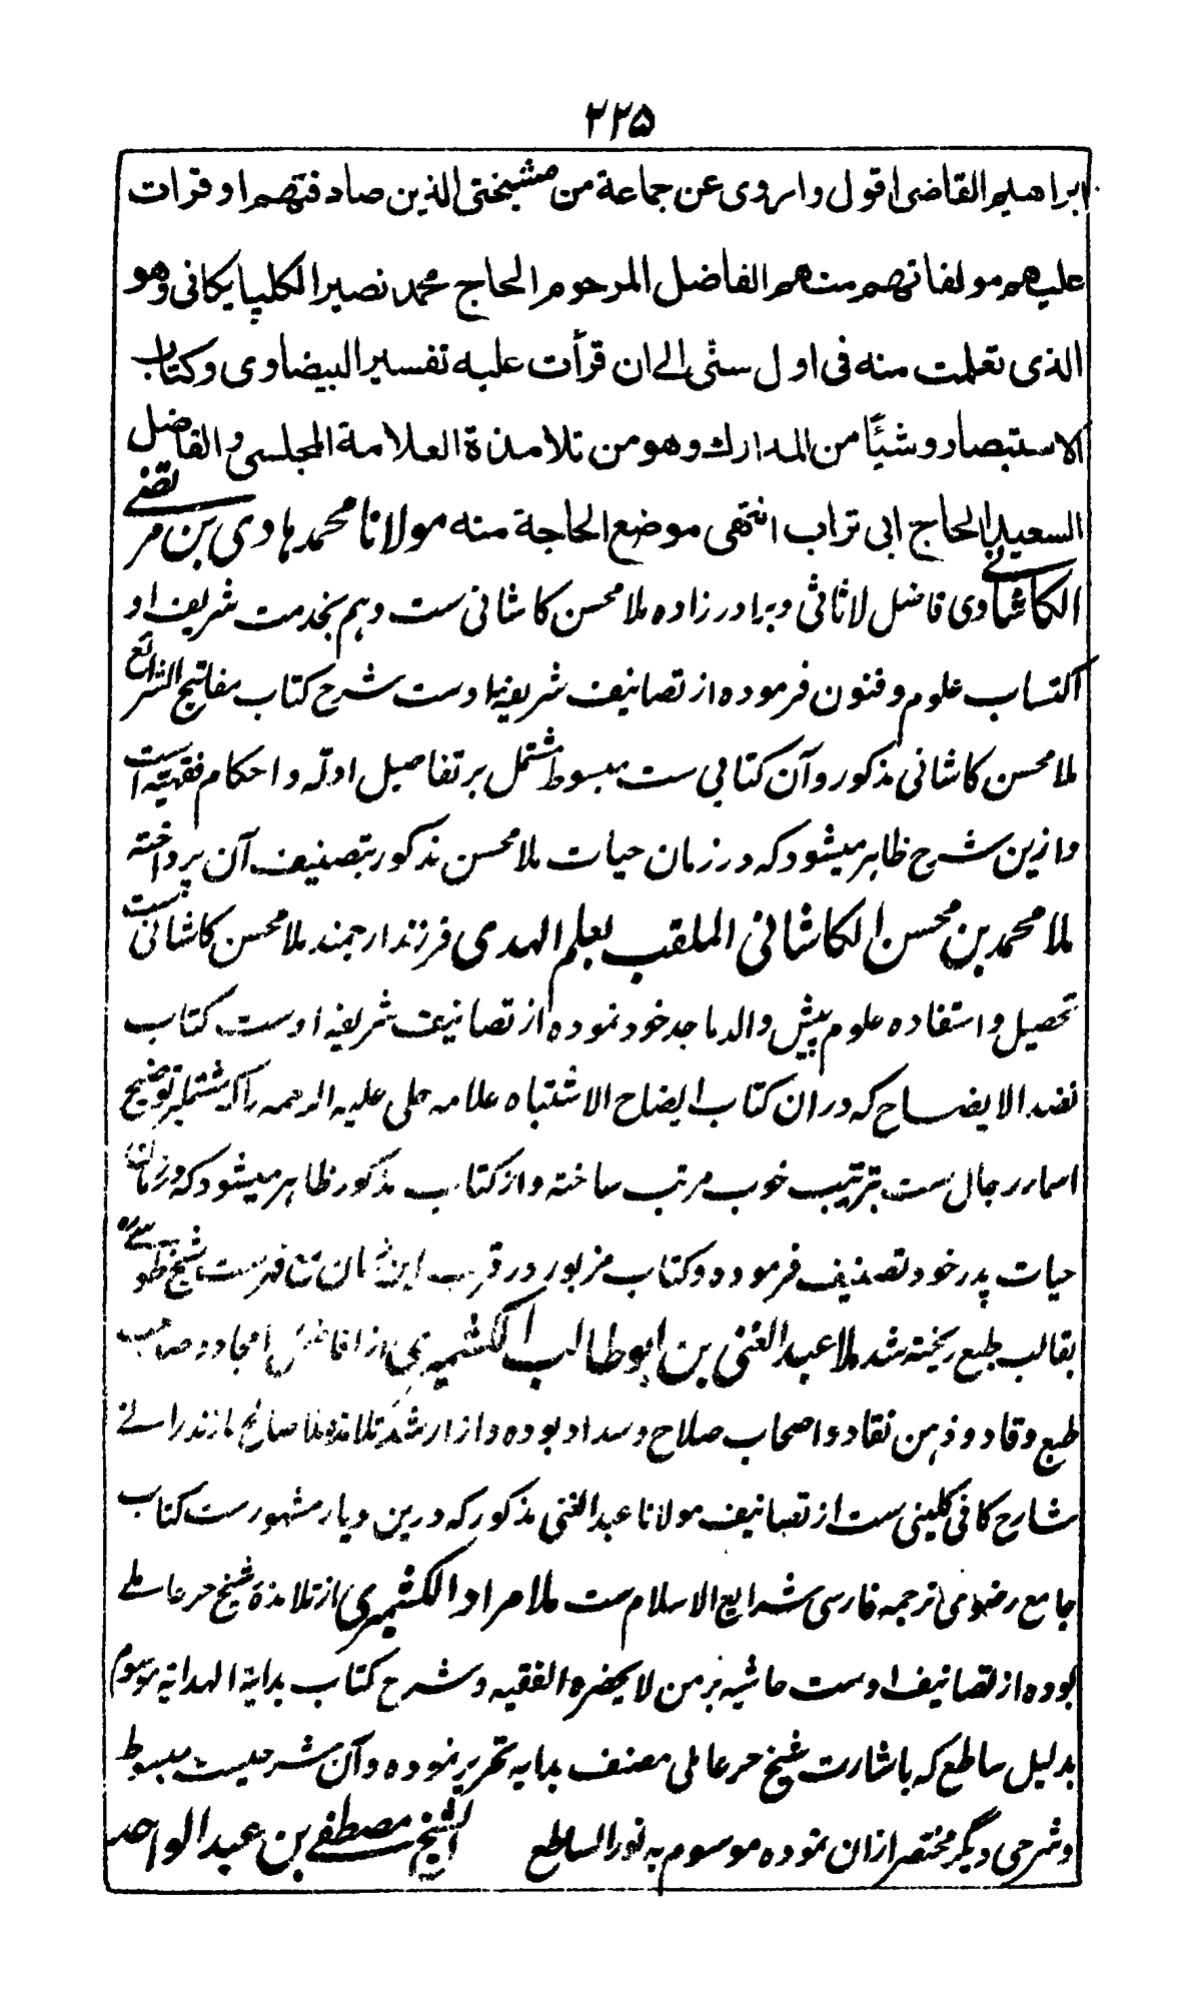 ۲۲۵
ابراهيم القاضى اقول واروى عن جماعة من مشيختى الذين صادفتهم او قرات
عليهم مولفاتهم منهم الفاضل المرحوم الحاج محمد نصير الكلپايكانى وهو
الذى تعلمت منه فى اول سنّى الى ان قرأت عليه تفسير البيضاوى وكتاب
الاستبصار وشيئًا من المدارك وهو من تلامذة العلامة المجلسى والفاضل
السعيد الحاج ابى تراب انتهى موضع الحاجة منه مولانا محمد ہادی بن مرتضے
الکاشانے وی فاضل لاثانی وبرادر زاده ملا محسن کاشانی ست وہم بخدمت شریف او
اکتساب علوم و فنون فرموده از تصانیف شریفۂ اوست شرح کتاب مفاتیح الشرائع
ملا محسن کاشانی مذکور و آن کتابی ست مبسوط مشتمل بر تفاصیل ادلّه و احکام فقہیّه است
و ازین شرح ظاہر میشود که در زمان حیات ملا محسن مذکور بتصنیف آن پرداخته
ملا محمد بن محسن الکاشانی الملقب بعلم الہدی فرزند ارجمند ملا محسن کاشانی ست
تحصیل و استفاده علوم پیش والد ماجد خود نموده از تصانیف شریفه اوست کتاب
نضد الایضاح که دران کتاب ایضاح الاشتباه علامه حلی علیه الرحمه را که مشتملبر توضیح
اسماء رجال ست بترتیب خوب مرتب ساخته و از کتاب مذکور ظاہر میشود که در زمان
حیات پدر خود تصنیف فرموده و کتاب مزبور در قرب این زمان مع فہرست شیخ طوسے
بقالب طبع ریخته شد ملا عبد الغنی بن ابو طالب الکشمیری از افاضل امجاد و صاحب
طبع وقاد و ذہن نقاد و اصحاب صلاح و سداد بوده و از ارشد تلامذۂ ملا صالح مازندرانے
شارح کافی کلینی ست از تصانیف مولانا عبد الغنی مذکور که درین دیار مشہورست کتاب
جامع رضوی ترجمه فارسی شرایع الاسلام ست ملا مراد الکشمیری از تلامذۂ شیخ حر عاملے
بوده از تصانیف اوست حاشیه بر من لا یحضره الفقیه و شرح کتاب بدایة الہدایه موسوم
بدلیل ساطع که باشارت شیخ حر عاملی مصنف بدایه تحریر نموده و آن شرحیست مبسوط
و شرحی دیگر مختصر ازان نموده موسوم به نور الساطع الشیخ مصطفے بن عبد الواحد